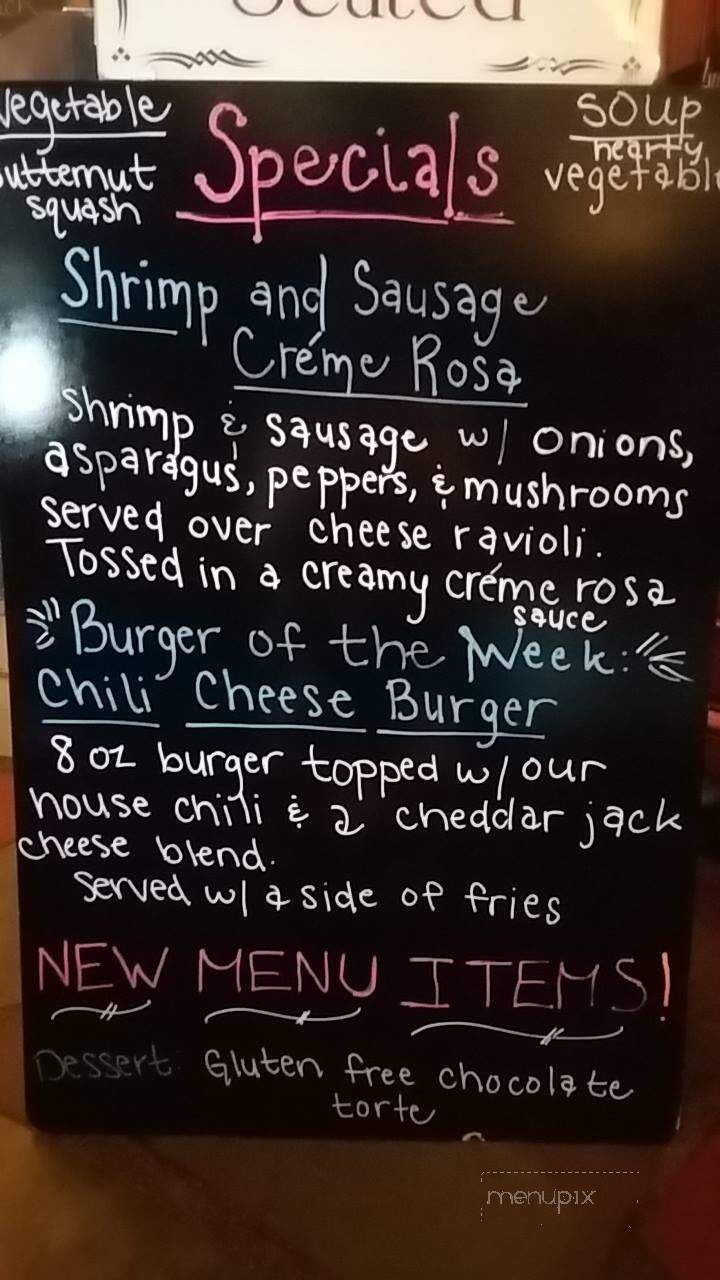 Vegetable
butternut
squash
Specials
Soup
hearty
vegetable
Shrimp and Sausage
Créme Rosa
Shrimp & sausage w/ onions,
asparagus, peppers, & mushrooms
served over cheese ravioli.
Tossed in a creamy créme rosa
sauce
Burger of the Week:
Chili Cheese Burger
8 oz burger topped w/ our
house chili & a cheddar jack
cheese blend.
Served w/ a side of fries
NEW MENU ITEMS!
Dessert: Gluten free chocolate
torte
menupix